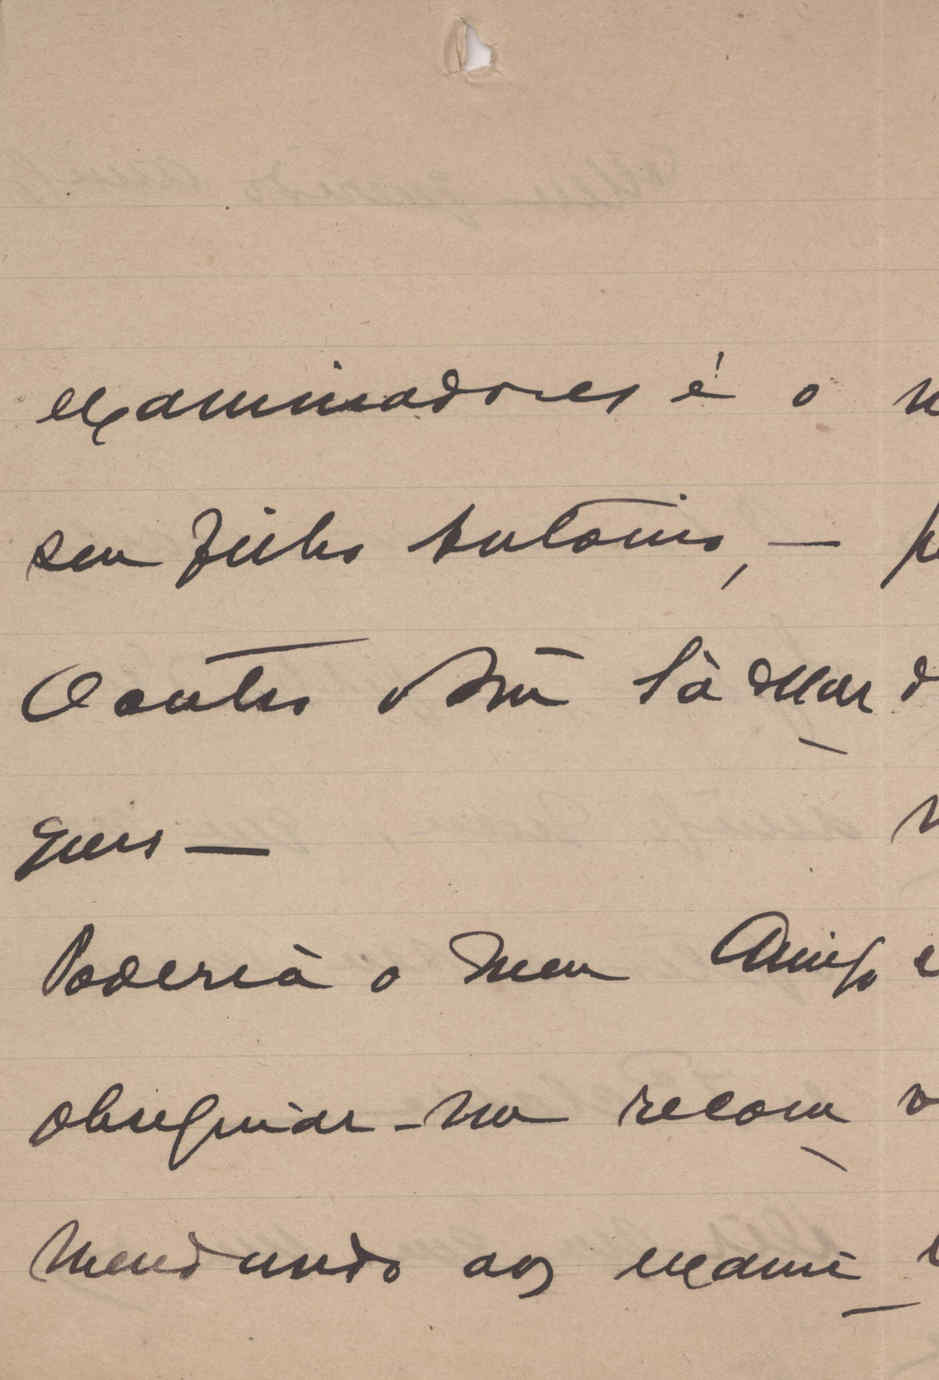 examinadores é o
seu filho Antonio, —
O outro o Snr Sá Mar
ques —
Poderia o meu Amigo
obsequiar-me recom
mendando aos exami